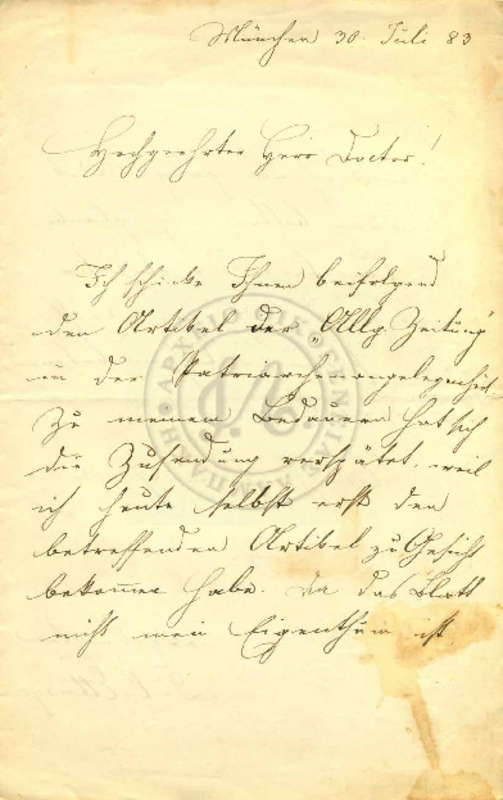 München 30. Juli 83
Hochgeehrter Herr Doctor!
Ich schicke Ihnen beifolgend
den Artikel der „Allg. Zeitung“
in der Patriarchenangelegenheit.
Zu meinem Bedauern hat sich
die Zusendung verspätet, weil
ich heute selbst erst den
betreffenden Artikel zu Gesicht
bekom̅en habe. Da das Blatt
nicht mein Eigenthum ist